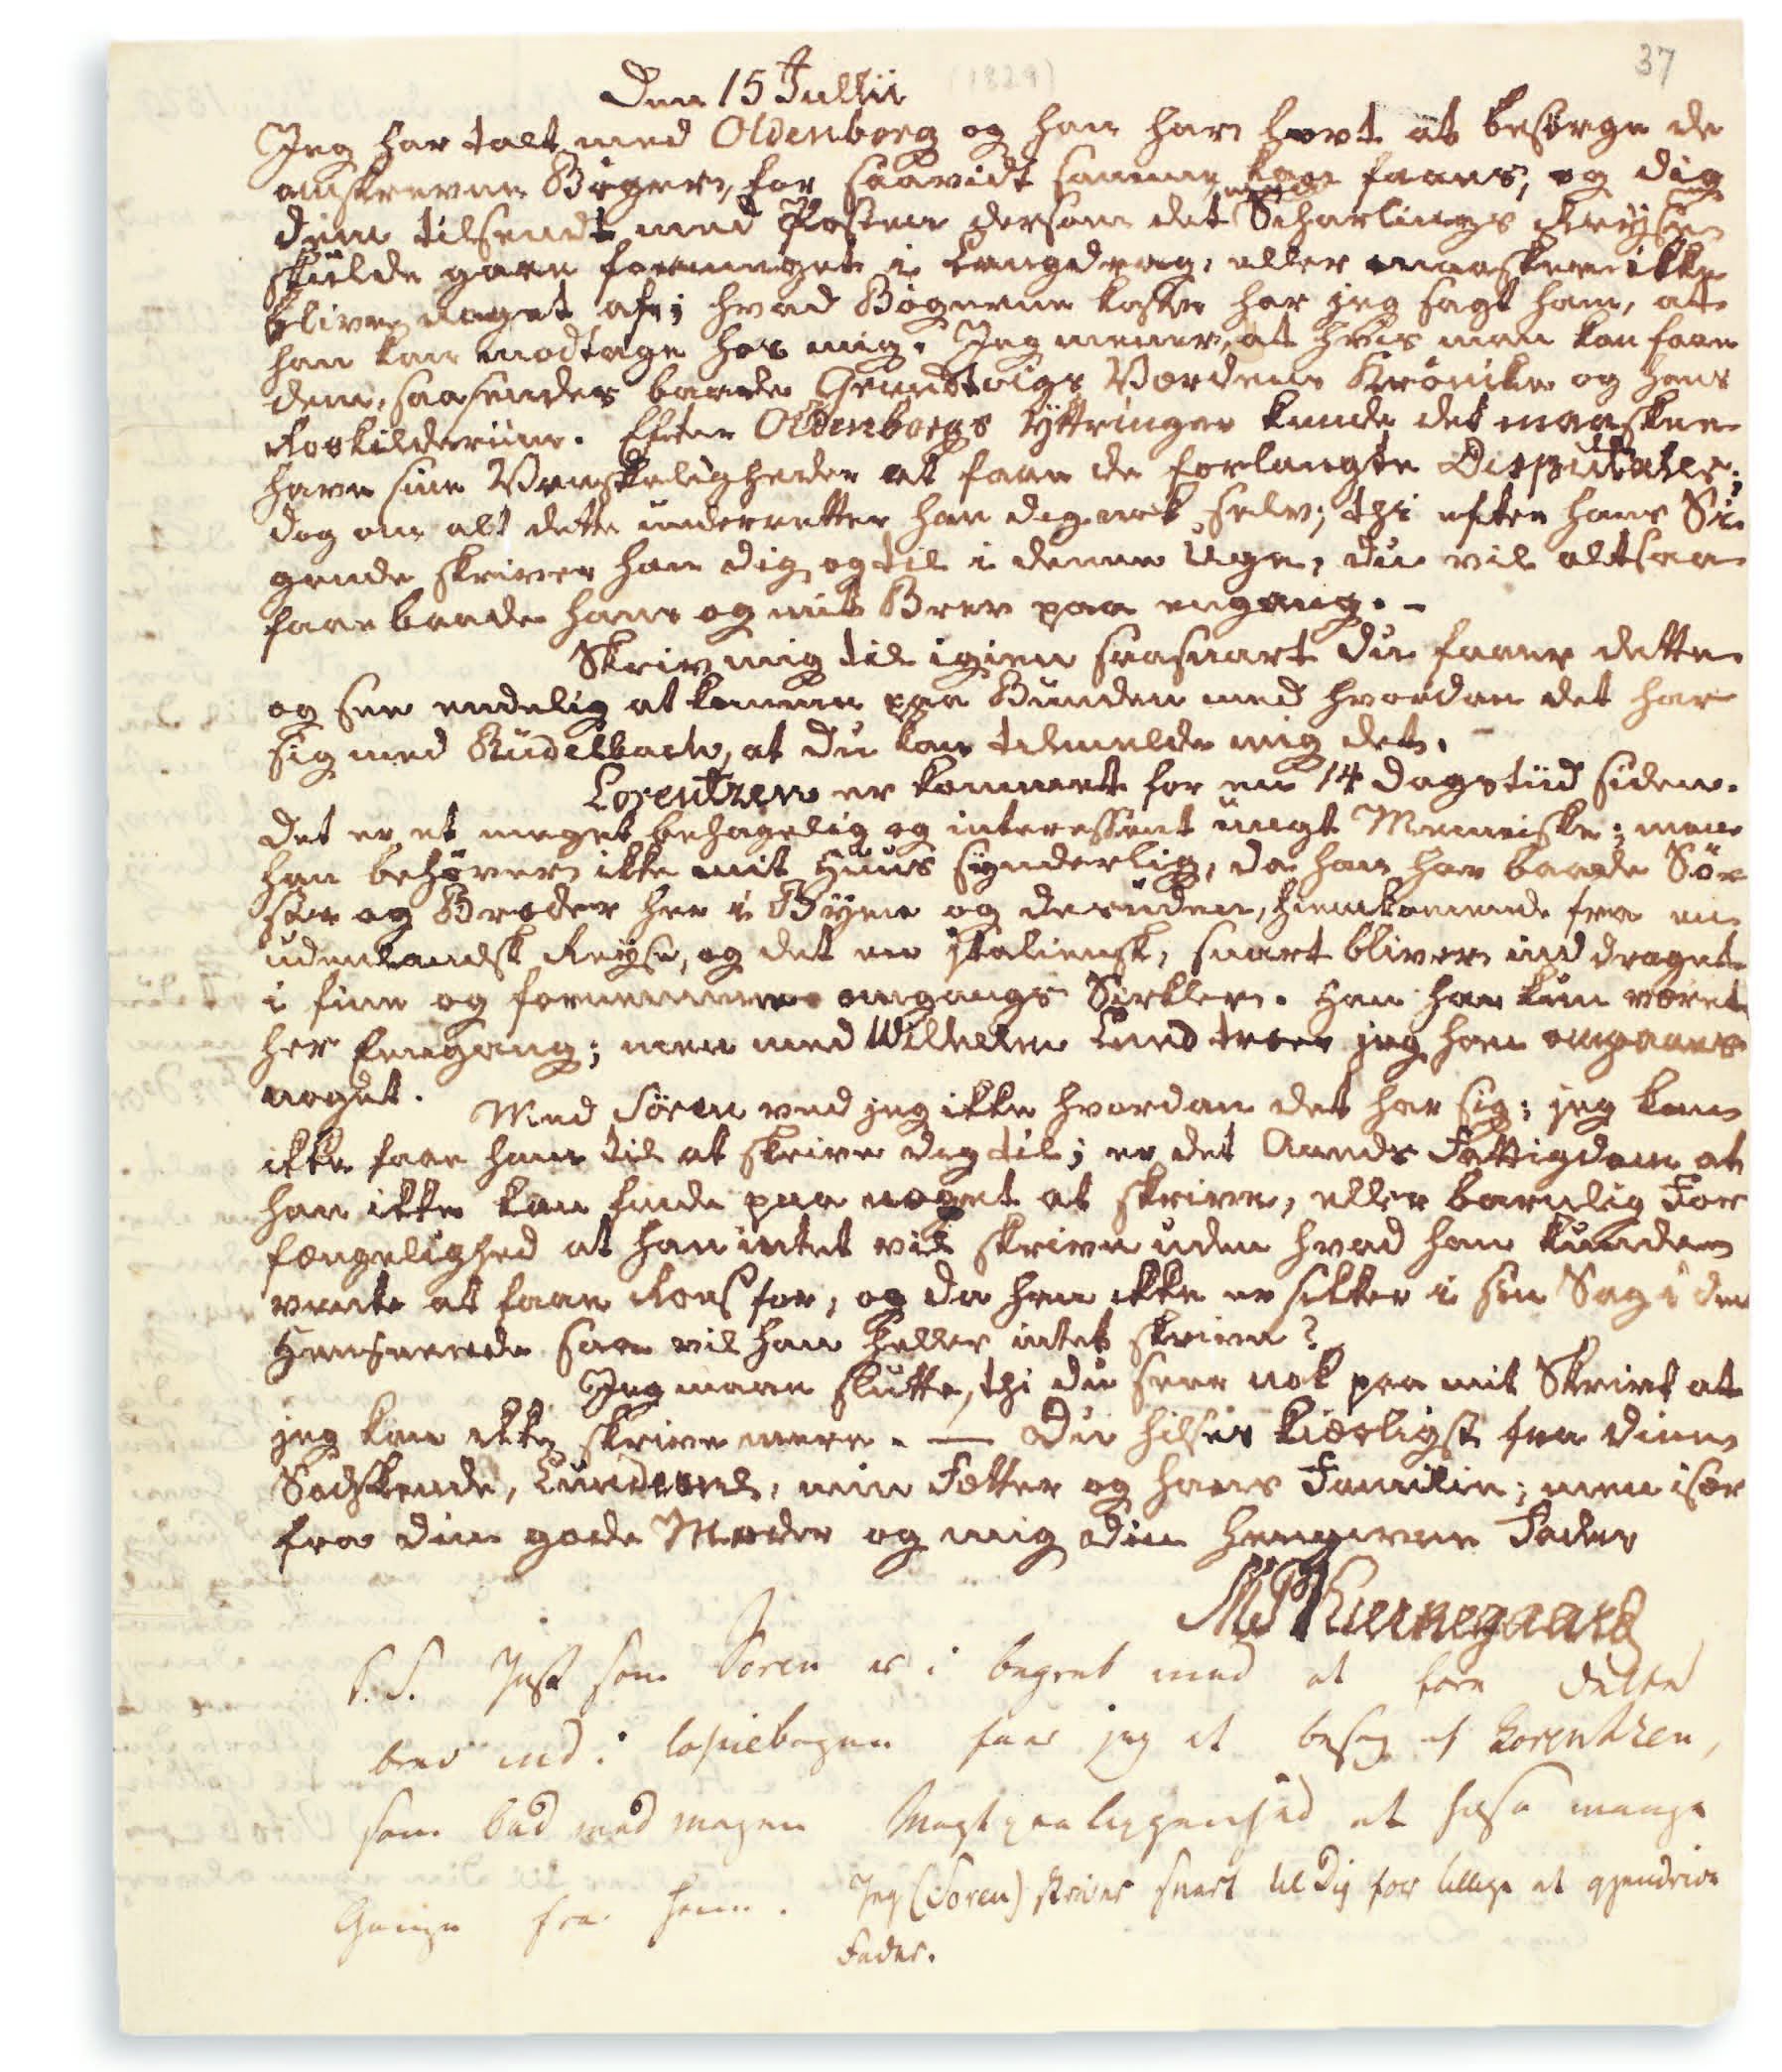 37
Den 15 Jullii (1829)
Jeg har talt med Oldenborg og han har lovt at besørge de
anskrevne Bøger, for saavidt samme kan faaes, og dig
dem tilsendt med Posten dersom det med Scharlings Reÿse
skulde gaae formeget i Langdrag, eller maaskee ikke
blive noget af; hvad Bøgerne koste har jeg sagt ham, at
han kan modtage hos mig. Jeg mener, at hvis man kan faae
dem, saa sendes baade Grundtvigs Verdens Krønicke og hans
Roskilderiim. Efter Oldenborgs Ÿttringer kunde det maaskee
have sine Vanskeligheder at faae de forlangte Disputatser;
dog om alt dette underretter han dig nok selv; thi efter hans Si-
gende skriver han dig og til i denne Uge, du vil altsaa
faae baade hans og mit Brev paa engang. –
Skriv mig til igien saasnart du faaer dette
og see endelig at komme paa Bunden med hvordan det har
sig med Rudelbach, at du kan tilmelde mig det. –
Lorentzen er kommet for en 14 Dagstiid siden.
Det er et meget behagelig og interessant ungt Menniske; men
han behøver ikke mit Huus sÿnderlig, da han har baade Sø-
ster og Broder her i Bÿen og desuden, hiemkomende fra en
udenlandsk Reÿse, og det en italiensk, snart bliver inddraget
i fine og fornemmere omgangs Sirkler. Han har kun været
her Eengang; men med Wilhelm Lund troer jeg han omgaaes
noget.
Med Søren ved jeg ikke hvordan det har sig; jeg kan
ikke faae ham til at skrive dig til; er det Aands Fattigdom at
han ikke kan finde paa noget at skrive, eller barnlig For
fængelighed at han intet vil skrive uden hvad han kunde
vente at faae Roes for, og da han ikke er sikker i sin Sag i den
Henseende saa vil han heller intet skrive?
Jeg maae slutte, thi du seer nok paa mit Skrivt at
jeg kan ikke skrive mere. — Du hilses kiærligst fra dine
Sødskende, Lunderne, min Fætter og hans Familie; men især
fra din gode Moder og mig din Hengivne Fader
MPKierkegaard
P. S. Just som Søren er i begreb med at føre dette
brev ind i Copiebogen faaer jeg et besøg af Lorentzen,
som bad med megen Magtpaaliggenhed at hilse mange
Gange fra ham. Jeg (Søren) skriver snart til Dig for tillige at gjendrive
Fader.